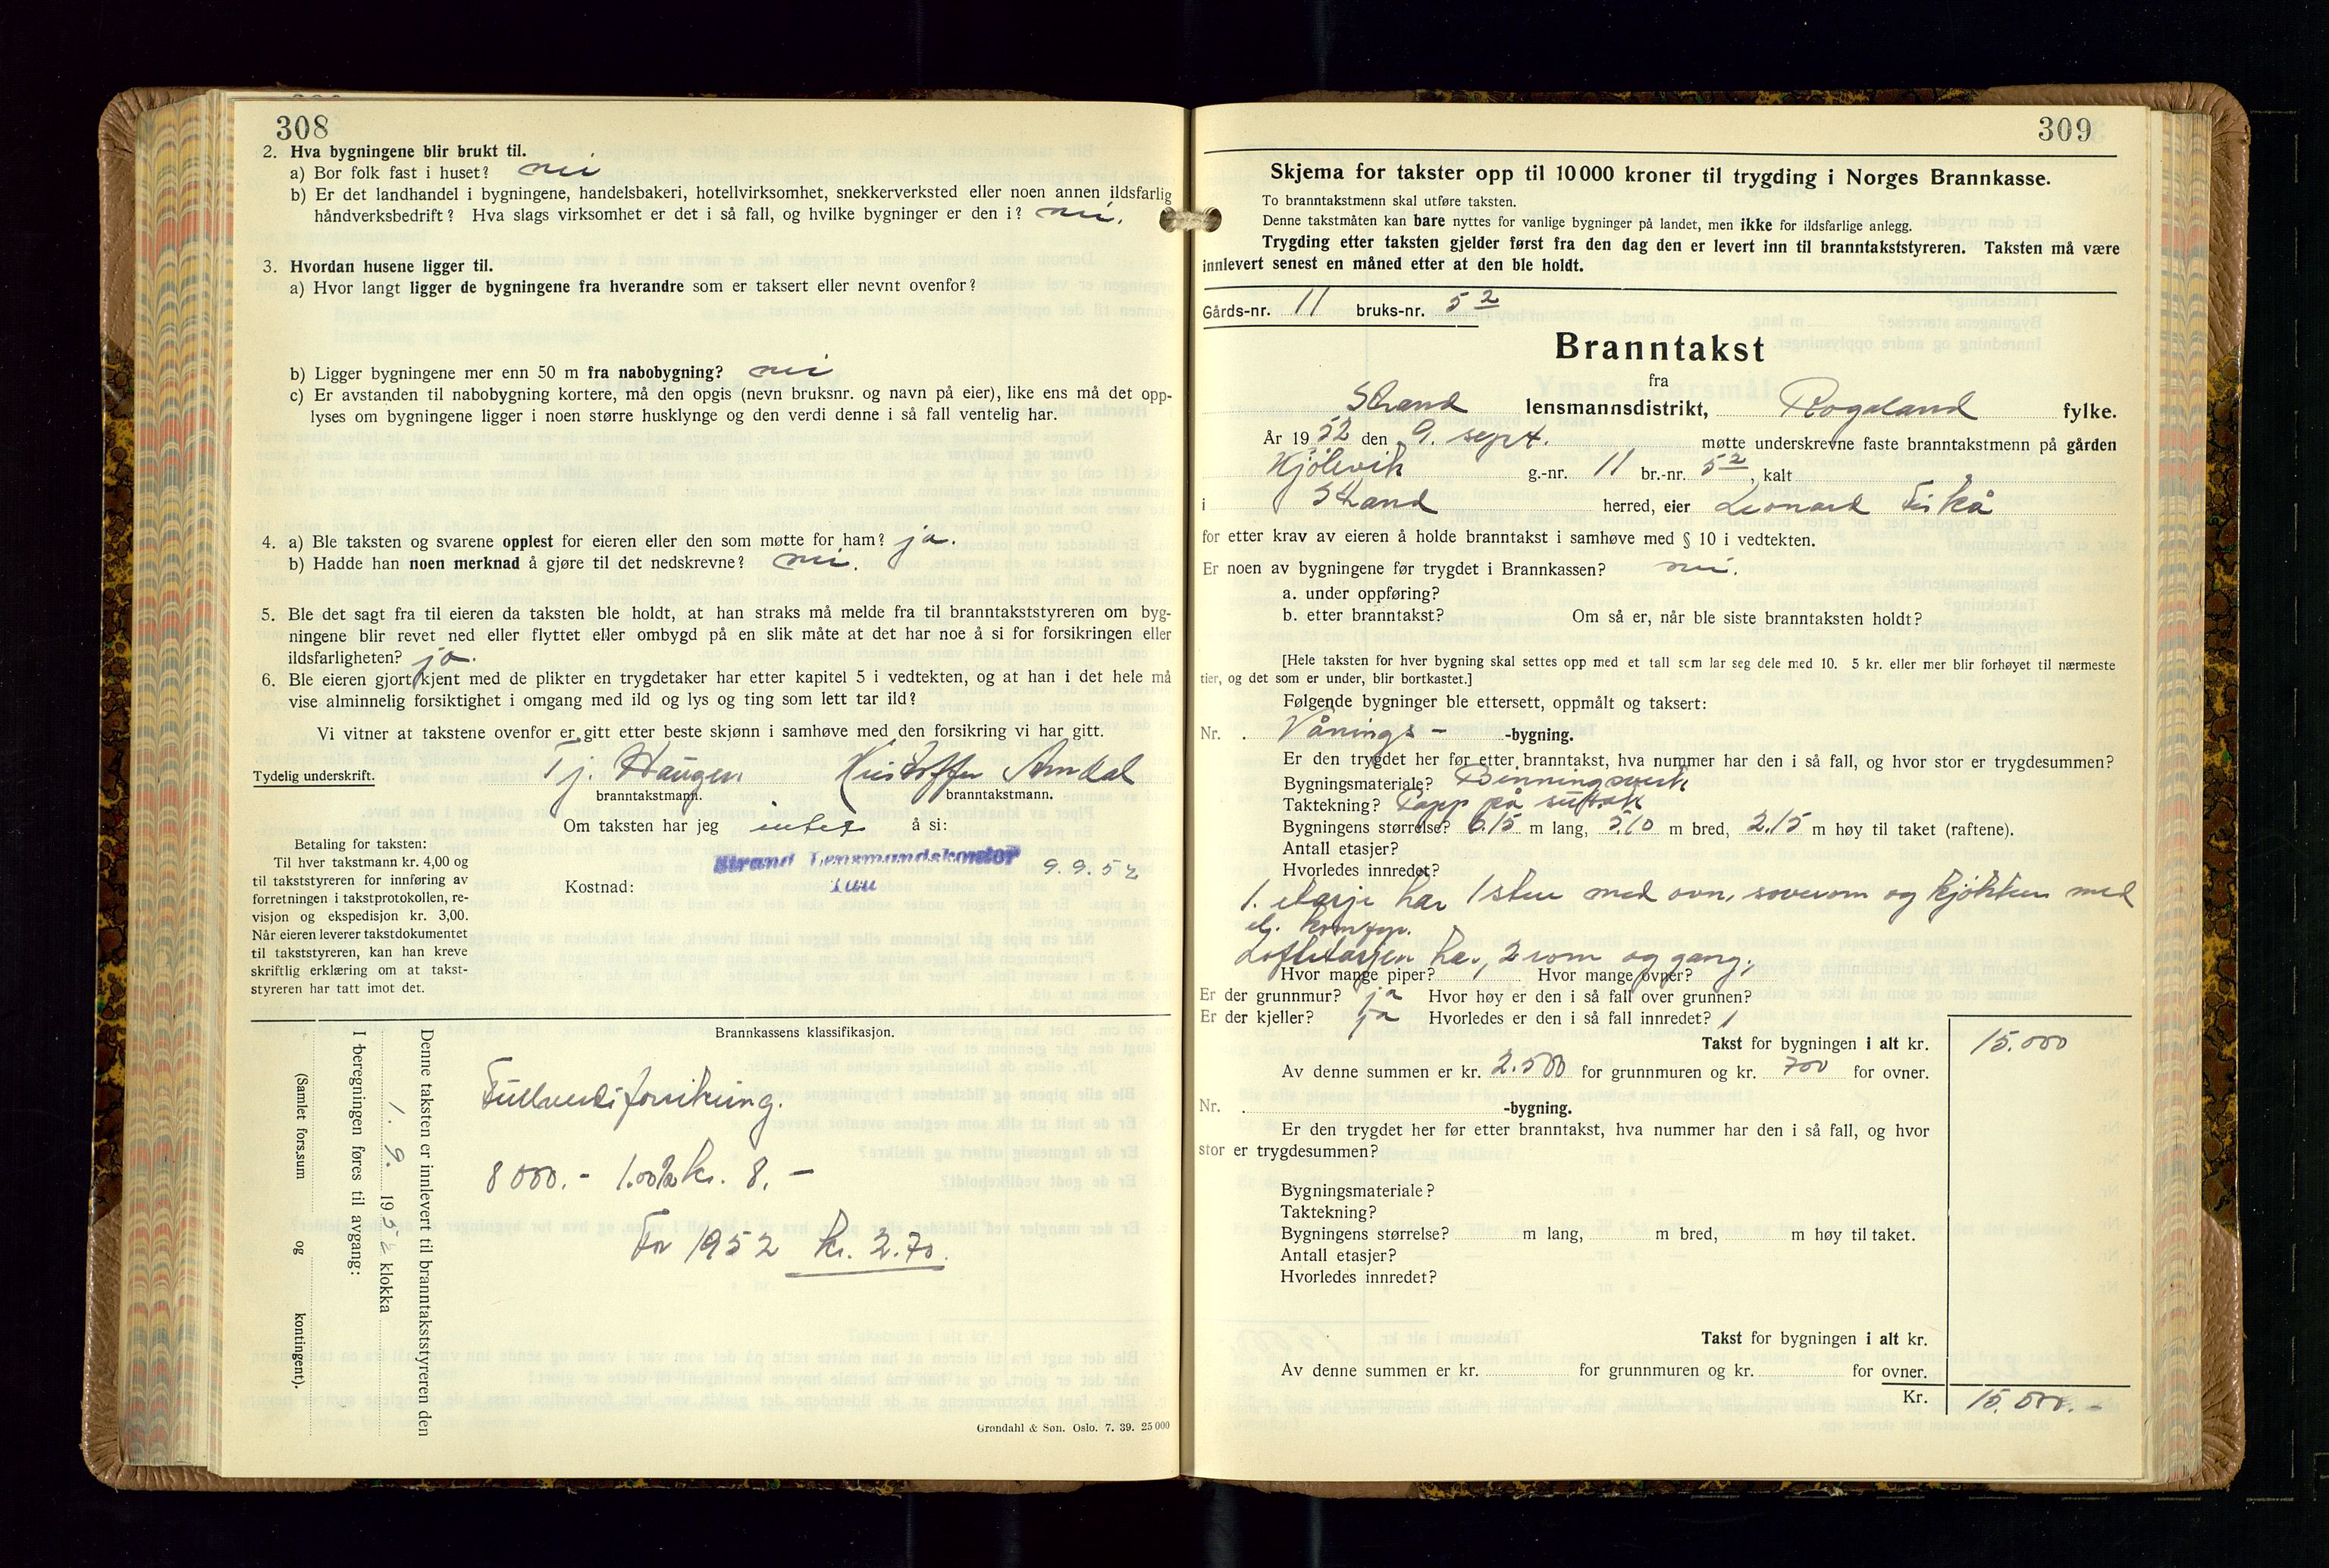 308
2. Hva bygningene blir brukt til.
a) Bor folk fast i huset? nei
b) Er det landhandel i bygningene, handelsbakeri, hotellvirksomhet, snekkerverksted eller noen annen ildsfarlig
håndverksbedrift? Hva slags virksomhet er det i så fall, og hvilke bygninger er den i? nei.
3. Hvordan husene ligger til.
a) Hvor langt ligger de bygningene fra hverandre som er taksert eller nevnt ovenfor?
b) Ligger bygningene mer enn 50 m fra nabobygning? nei
c) Er avstanden til nabobygning kortere, må den opgis (nevn bruksnr. og navn på eier), like ens må det opp-
lyses om bygningene ligger i noen større husklynge og den verdi denne i så fall ventelig har.
4. a) Ble taksten og svarene opplest for eieren eller den som møtte for ham? ja.
b) Hadde han noen merknad å gjøre til det nedskrevne? nei.
5. Ble det sagt fra til eieren da taksten ble holdt, at han straks må melde fra til branntakststyreren om byg-
ningene blir revet ned eller flyttet eller ombygd på en slik måte at det har noe å si for forsikringen eller
ildsfarligheten? ja.
6. Ble eieren gjort kjent med de plikter en trygdetaker har etter kapitel 5 i vedtekten, og at han i det hele må
vise alminnelig forsiktighet i omgang med ild og lys og ting som lett tar ild?
Vi vitner at takstene ovenfor er gitt etter beste skjønn i samhøve med den forsikring vi har gitt.
Tydelig underskrift. Tj. Haugen Kristoffer Amdal
branntakstmann. branntakstmann.
Om taksten har jeg intet å si:
Strand Lensmandskontor 9.9.52
Tau
Kostnad:
Betaling for taksten:
Til hver takstmann kr. 4,00 og
til takststyreren for innføring av
forretningen i takstprotokollen, re-
visjon og ekspedisjon kr. 3,00.
Når eieren leverer takstdokumentet
til takststyreren, kan han kreve
skriftlig erklæring om at takst-
styreren har tatt imot det.
Brannkassens klassifikasjon.
Denne taksten er innlevert til branntakststyreren den
1. 9. 1952 klokka
I beregningen føres til avgang:
(Samlet fors.sum og kontingent).
Fullverdiforsikring.
8000.- 1.00‰ kr. 8.-
For 1952 kr. 2.70.
Grøndahl & Søn. Oslo. 7. 39. 25 000
309
Skjema for takster opp til 10 000 kroner til trygding i Norges Brannkasse.
To branntakstmenn skal utføre taksten.
Denne takstmåten kan bare nyttes for vanlige bygninger på landet, men ikke for ildsfarlige anlegg.
Trygding etter taksten gjelder først fra den dag den er levert inn til branntakststyreren. Taksten må være
innlevert senest en måned etter at den ble holdt.
Gårds-nr. 11 bruks-nr. 52
Branntakst
fra
Strand lensmannsdistrikt, Rogaland fylke.
År 1952 den 9. sept. møtte underskrevne faste branntakstmenn på gården
Kjölevik g.-nr. 11 br.-nr. 52, kalt
i Strand herred, eier Leonard Fiskå
for etter krav av eieren å holde branntakst i samhøve med § 10 i vedtekten.
Er noen av bygningene før trygdet i Brannkassen? nei.
a. under oppføring?
b. etter branntakst? Om så er, når ble siste branntaksten holdt?
[Hele taksten for hver bygning skal settes opp med et tall som lar seg dele med 10. 5 kr. eller mer blir forhøyet til nærmeste
tier, og det som er under, blir bortkastet.]
Følgende bygninger ble ettersett, oppmålt og taksert:
Nr. Vånings- -bygning.
Er den trygdet her før etter branntakst, hva nummer har den i så fall, og hvor stor er trygdesummen?
Bygningsmateriale? Binningsverk
Taktekning? Papp på sutak
Bygningens størrelse? 6.15 m lang, 5.10 m bred, 2.15 m høy til taket (raftene).
Antall etasjer?
Hvorledes innredet?
1. etasje har 1 stue med ovn, soverom og kjökken med
el. komfyr.
Loftetasjen har 2 rom og gang.
Hvor mange piper? Hvor mange ovner?
Er der grunnmur? ja Hvor høy er den i så fall over grunnen?
Er der kjeller? ja Hvorledes er den i så fall innredet?
Takst for bygningen i alt kr. 15.000
Av denne summen er kr. 2.500 for grunnmuren og kr. 700 for ovner.
Nr. -bygning.
Er den trygdet her før etter branntakst, hva nummer har den i så fall, og hvor
stor er trygdesummen?
Bygningsmateriale?
Taktekning?
Bygningens størrelse? m lang, m bred, m høy til taket.
Antall etasjer?
Hvorledes innredet?
Takst for bygningen i alt kr.
Av denne summen er kr. for grunnmuren og kr. for ovner.
Kr. 15.000.-